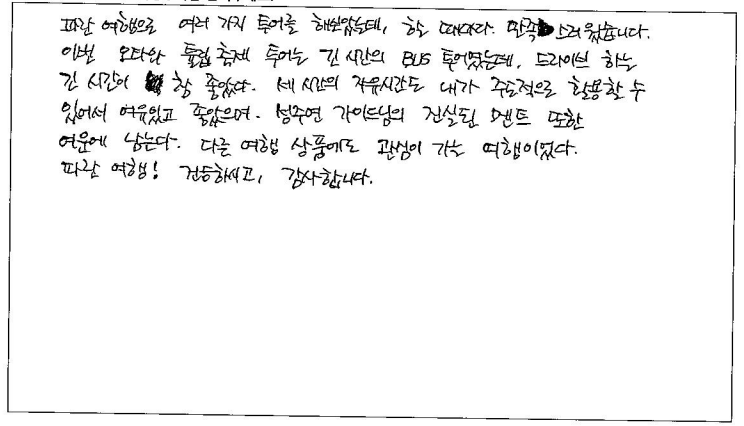 파란 여행으로 여러 가지 투어를 해보았는데, 하는 때마다. 만족스러웠습니다.
이번 오타와 튤립 축제 투어는 긴 시간의 BUS 투어였는데, 드라이브 하는
긴 시간이 참 좋았다. 세 시간의 자유시간도 내가 주도적으로 활용할 수
있어서 여유있고 좋았으며. 성주연 가이드님의 진실된 멘트 또한
여운에 남는다. 다른 여행 상품에도 관심이 가는 여행이었다.
파란 여행! 건승하시고, 감사합니다.